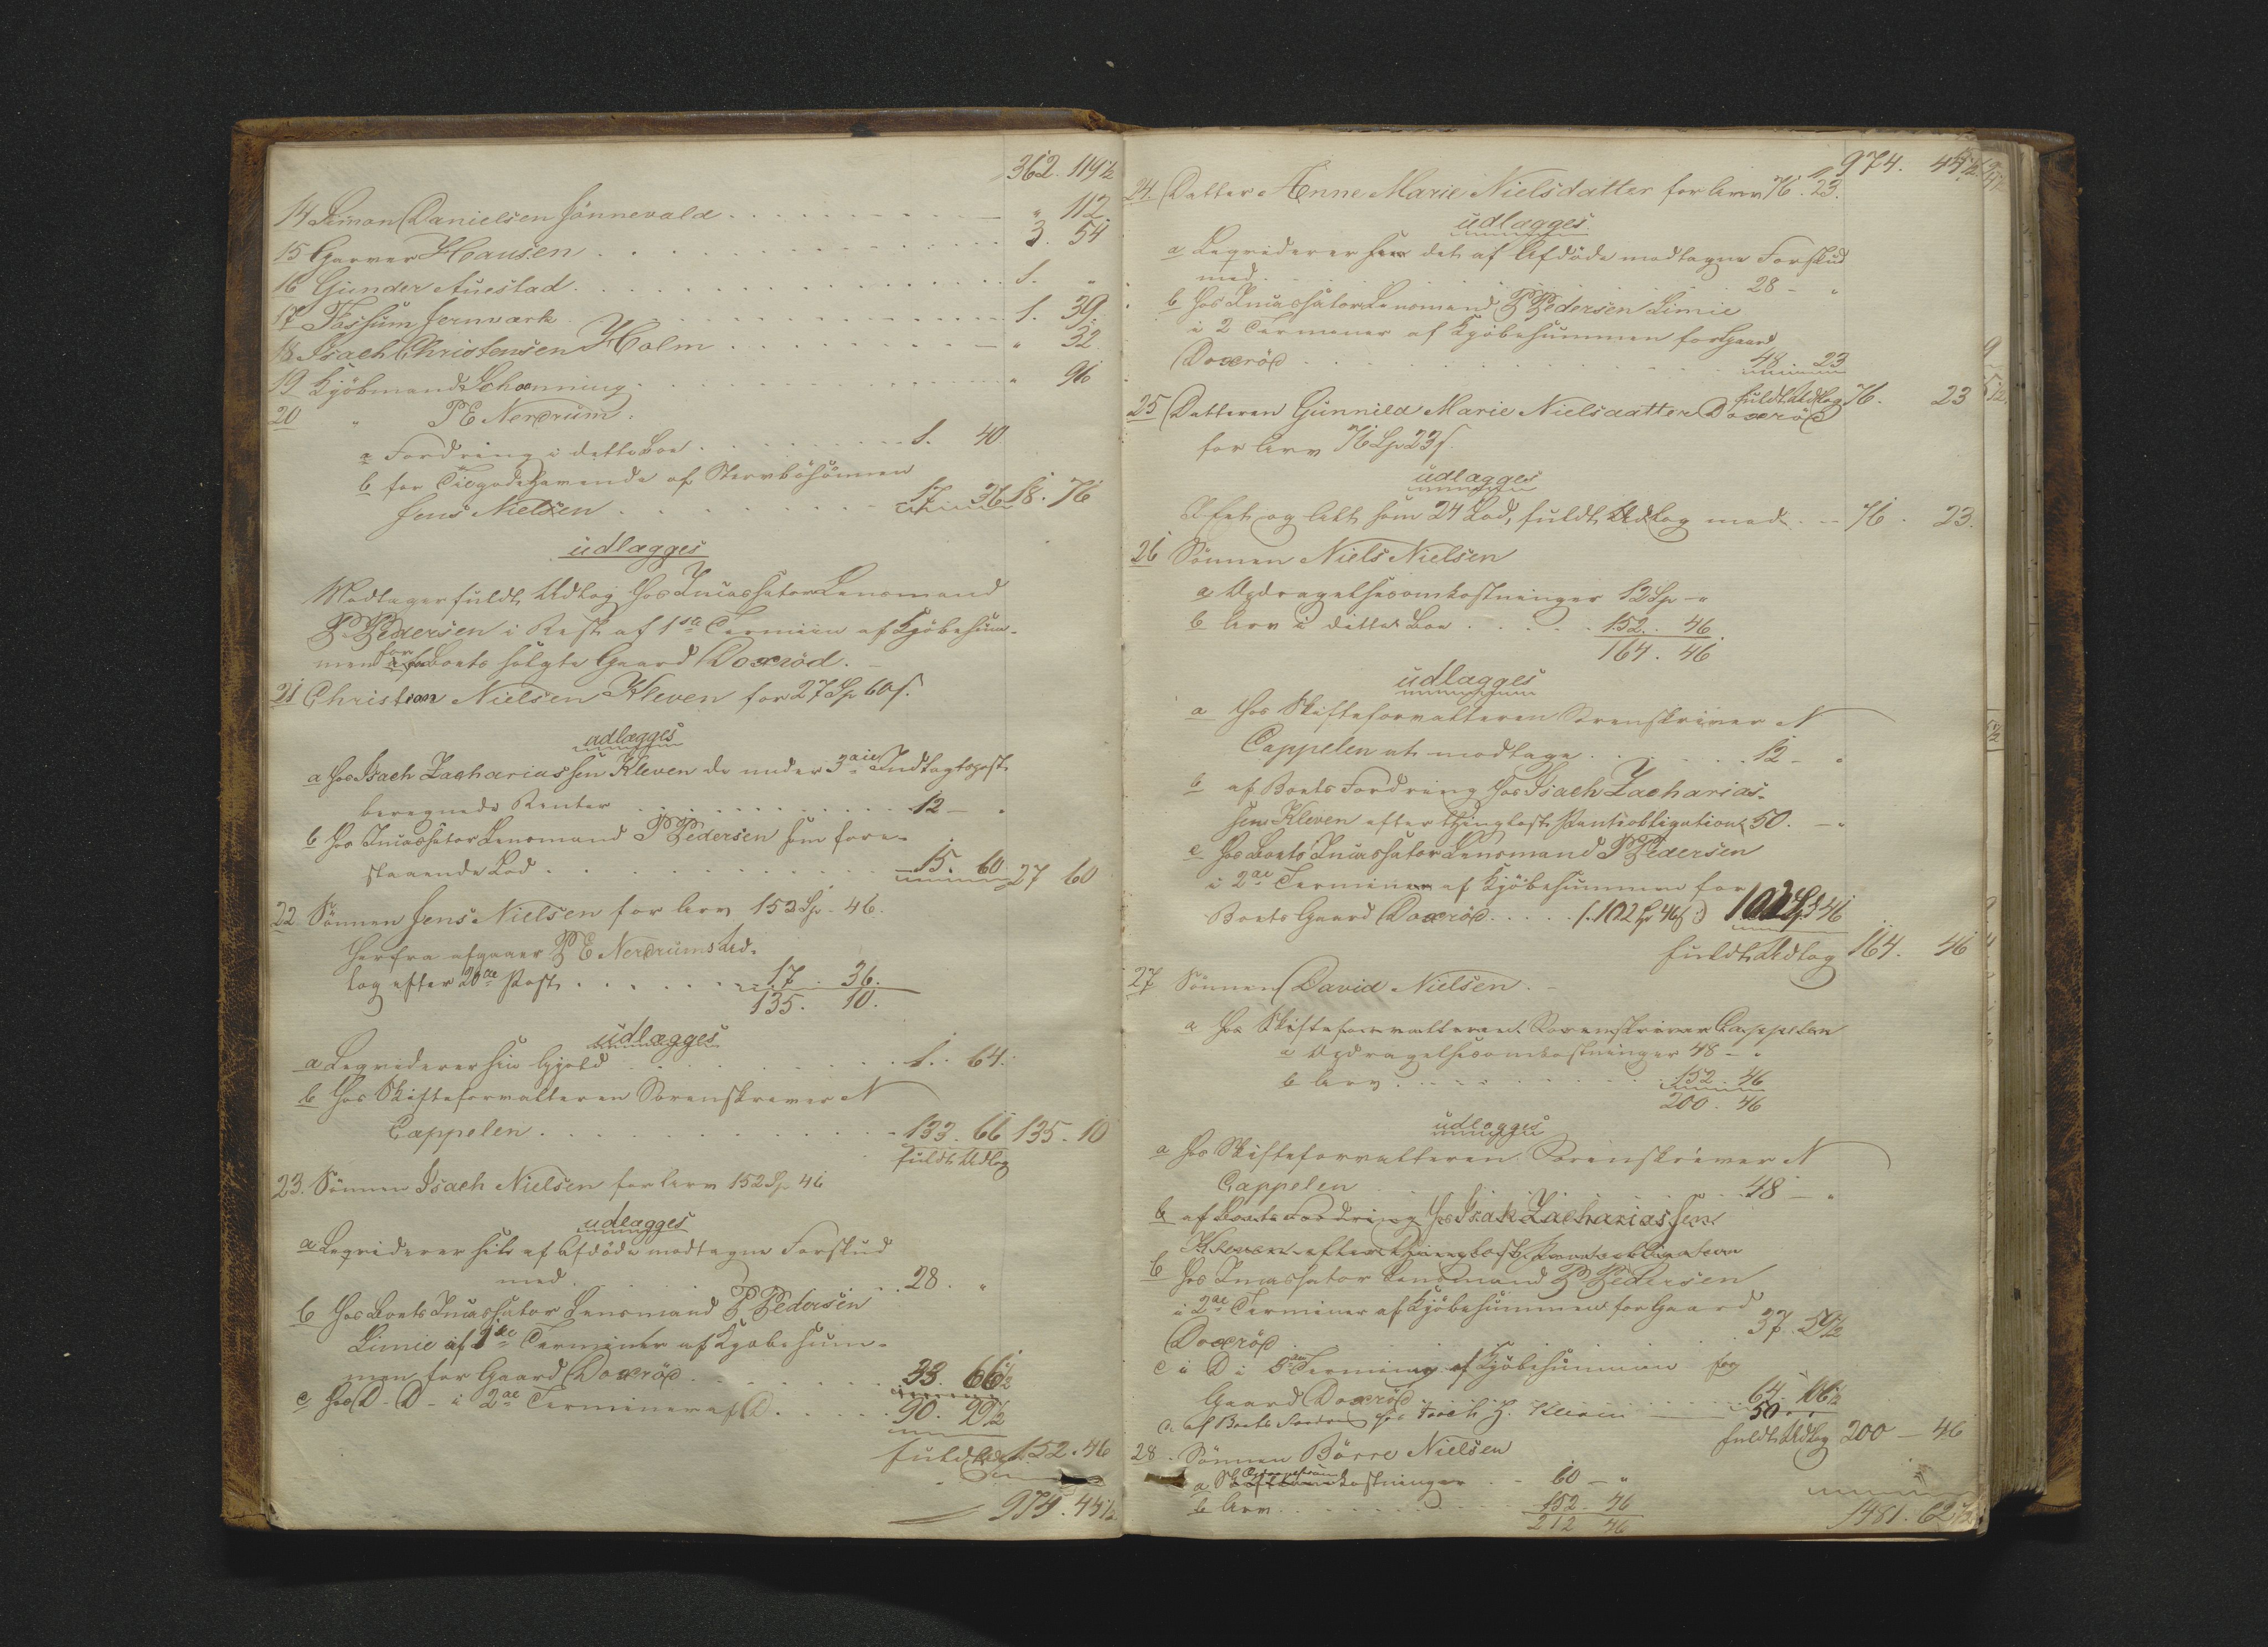 362. 119½
14 Simon Danielsen Sønnevald - " 112.
15 Garver Hansen 3. 54
16 Gunder Auestad 1. "
17 Fossum Jernværk 1. 39.
18 Isach Christensen Holm - " 32
19 Kjøbmand Schanning " 96
20 " P E Nerdrum.
a Fordring i dette Boe 1. 40
b for Tilgodehavende af Stervbøsønnen
Jens Nielsen 17. 36 18. 76
udlægges
Modtager fuldt Udlæg hos Incassator Lensmand
P Pedersen i Rest af 1ste Termin af Kjøbesum-
men for Boets solgte Gaard Doxrød. -
21 Christian Nielsen Kleven for 27 Sp 60 s.
udlægges
a hos Isach Zachariassen Kleven de under 3die Indtægtspost
beregnede Renter 12 - "
b hos Incassator Lensmand P Pedersen som fore-
staaende Lod 15. 60 27 60
22 Sønnen Jens Nielsen for Arv 152 Sp - 46.
Herfra afgaaer P E Nerdrums Ud-
læg efter 20de Post 17. 36.
135. 10.
udlægges
a Liqviderer sin Gjæld 1. 64.
b hos Skifteforvalteren Sorenskriver N
Cappelen 133. 66 135. 10
fuldt Udlæg
23. Sønnen Isach Nielsen for Arv 152 Sp 46
udlægges
a Liqviderer sit af Afdøde modtagne Forskud
med 28. "
b hos Boets Incassator Lensmand P Pedersen
Limie af 1ste Terminer af Kjøbesum-
men for Gaard Doxrød 33. 66½
c hos D. D - i 2de Terminer af D. 90. 99½
fuldt Udl. 152. 46
974. 44½
974. 44½
24. Datter Anne Marie Nielsdatter for Arv 76. 23.
udlægges
a Liqviderer hun det af Afdøde modtagne Forskud
med 28 - "
b hos Incassator Lensmand P Pedersen Limie
i 2 Terminer af Kjøbesummen for Gaard
Doxrød 48. 23
fuldt Udlæg 76. 23
25 Datteren Gunnild Marie Nielsdatter Doxrød
for Arv 76 Sp 23 s.
udlægges
I Et og Alt som 24 Lod, fuldt Udlæg med 76. 23.
26 Sønnen Niels Nielsen
a Opdragelsesomkostninger 12 Sp - "
b Arv i dette Boe 152. 46.
164. 46
udlægges
a Hos Skifteforvalteren Sorenskriver N
Cappelen at modtage 12 - "
b af Boets Fordring hos Isach Zacharias-
sen Kleven efter thinglæst Pantobligation 50. - "
c hos Boets Incassator Lensmand P Pedersen
i 2de Terminer af Kjøbesummen for
Boets Gaard Doxrød (: 102 Sp 46 s :) 102 Sp 46
fuldt Udlæg 164. 46
27 Sønnen David Nielsen. -
a hos Skifteforvalteren Sorenskriver Cappelen
a Opdragelsesomkostninger 48 - "
b Arv 152. 46
200. 46
udlægges
a hos Skifteforvalteren Sorenskriver N
Cappelen 48 - "
b af Boets Fordring hos Isak Zachariassen
Kleven efter thinglæst Pantobligation
b hos Incassator Lensmand P Pedersen
i 2de Terminer af Kjøbesummen for Gaard
Doxrød 37. 59½
c i D i 5te Termin af Kjøbesummen for
Gaard Doxrød 64. 106½
c. af Boets Fordring hos Isach Z. Kleven 50. "
fuldt Udlæg 200 - 46
28. Sønnen Børre Nielsen
a Opdragelsesomkostninger 60 - "
b Arv 152 - 46
212 46
1481. 62½